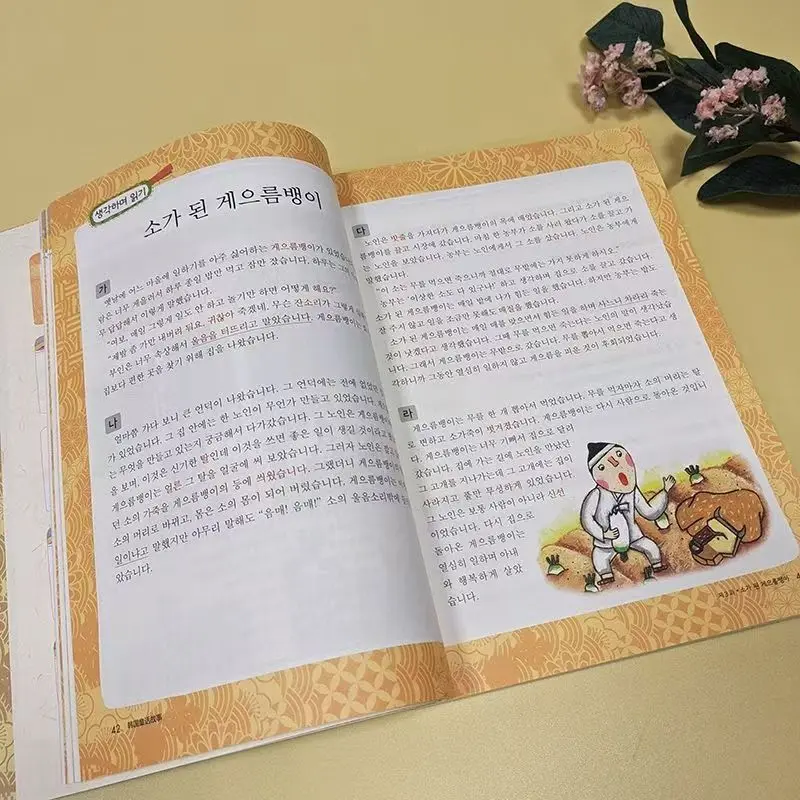 생각하며 읽기
소가 된 게으름뱅이
가
옛날에 어느 마을에 일하기를 아주 싫어하는 게으름뱅이가 있었습니
람은 너무 게을러서 하루 종일 밥만 먹고 잠만 잤습니다. 하루는 그의
무덤덤해서 이렇게 말했습니다.
"여보, 매일 그렇게 일도 안 하고 놀기만 하면 어떻게 해요?"
"제발 좀 가만 내버려 둬요. 귀찮아 죽겠네. 무슨 잔소리가 그렇게
부인은 너무 속상해서 울음을 터뜨리고 말았습니다. 게으름뱅이는
집보다 편한 곳을 찾기 위해 집을 나왔습니다.
나
얼마쯤 가다 보니 큰 언덕이 나왔습니다. 그 언덕에는 전에 없었던
가 있었습니다. 그 집 안에는 한 노인이 무언가 만들고 있었습니다.
는 무엇을 만들고 있는지 궁금해서 다가갔습니다. 그 노인은 게으름
을 보며, 이것은 신기한 탈인데 이것을 쓰면 좋은 일이 생길 것이라고
게으름뱅이는 얼른 그 탈을 얼굴에 써 보았습니다. 그러자 노인은
던 소의 가죽을 게으름뱅이의 등에 씌웠습니다. 그랬더니 게으름뱅이의
소의 머리로 바뀌고, 몸은 소의 몸이 되어 버렸습니다. 게으름뱅이는
일이냐고 말했지만 아무리 말해도 "음매! 음매!" 소의 울음소리밖에
있었습니다.
42 韩国童话故事
다
노인은 밧줄을 가져다가 게으름뱅이의 목에 매었습니다. 그리고 소가 된 게으
름뱅이를 끌고 시장에 갔습니다. 마침 한 농부가 소를 사러 왔다가 소를 끌고 가
는 노인을 보았습니다. 농부는 노인에게서 그 소를 샀습니다. 노인은 농부에게
말했습니다.
"이 소는 무를 먹으면 죽으니까 절대로 무밭에는 가지 못하게 하시오."
농부는 '이상한 소도 다 있구나!' 하고 생각하며 집으로 소를 끌고 갔습니다.
소가 된 게으름뱅이는 매일 밭에 나가 힘든 일을 했습니다. 하지만 농부는 밥도
잘 주지 않고 일을 조금만 못해도 매질을 했습니다.
소가 된 게으름뱅이는 매일 매를 맞으면서 힘든 일을 하며 사느니 차라리 죽는
것이 낫겠다고 생각했습니다. 그때 무를 먹으면 죽는다는 노인의 말이 생각났습
니다. 그래서 게으름뱅이는 무밭으로 갔습니다. 무를 뽑아서 먹으면 죽는다고 생
각하니까 그동안 열심히 일하지 않고 게으름을 피운 것이 후회되었습니다.
라
게으름뱅이는 무를 한 개 뽑아서 먹었습니다. 무를 먹자마자 소의 머리는 탈
로 변하고 소가죽이 벗겨졌습니다. 게으름뱅이는 다시 사람으로 돌아온 것입니
다. 게으름뱅이는 너무 기뻐서 집으로 달려
갔습니다. 집에 가는 길에 노인을 만났던
그 고개를 지나가는데 그 고개에는 집이
사라지고 풀만 무성하게 있었습니다.
그 노인은 보통 사람이 아니라 신선
이었습니다. 다시 집으로
돌아온 게으름뱅이는
열심히 일하며 아내
와 행복하게 살았
습니다.
제3과 · 소가 된 게으름뱅이